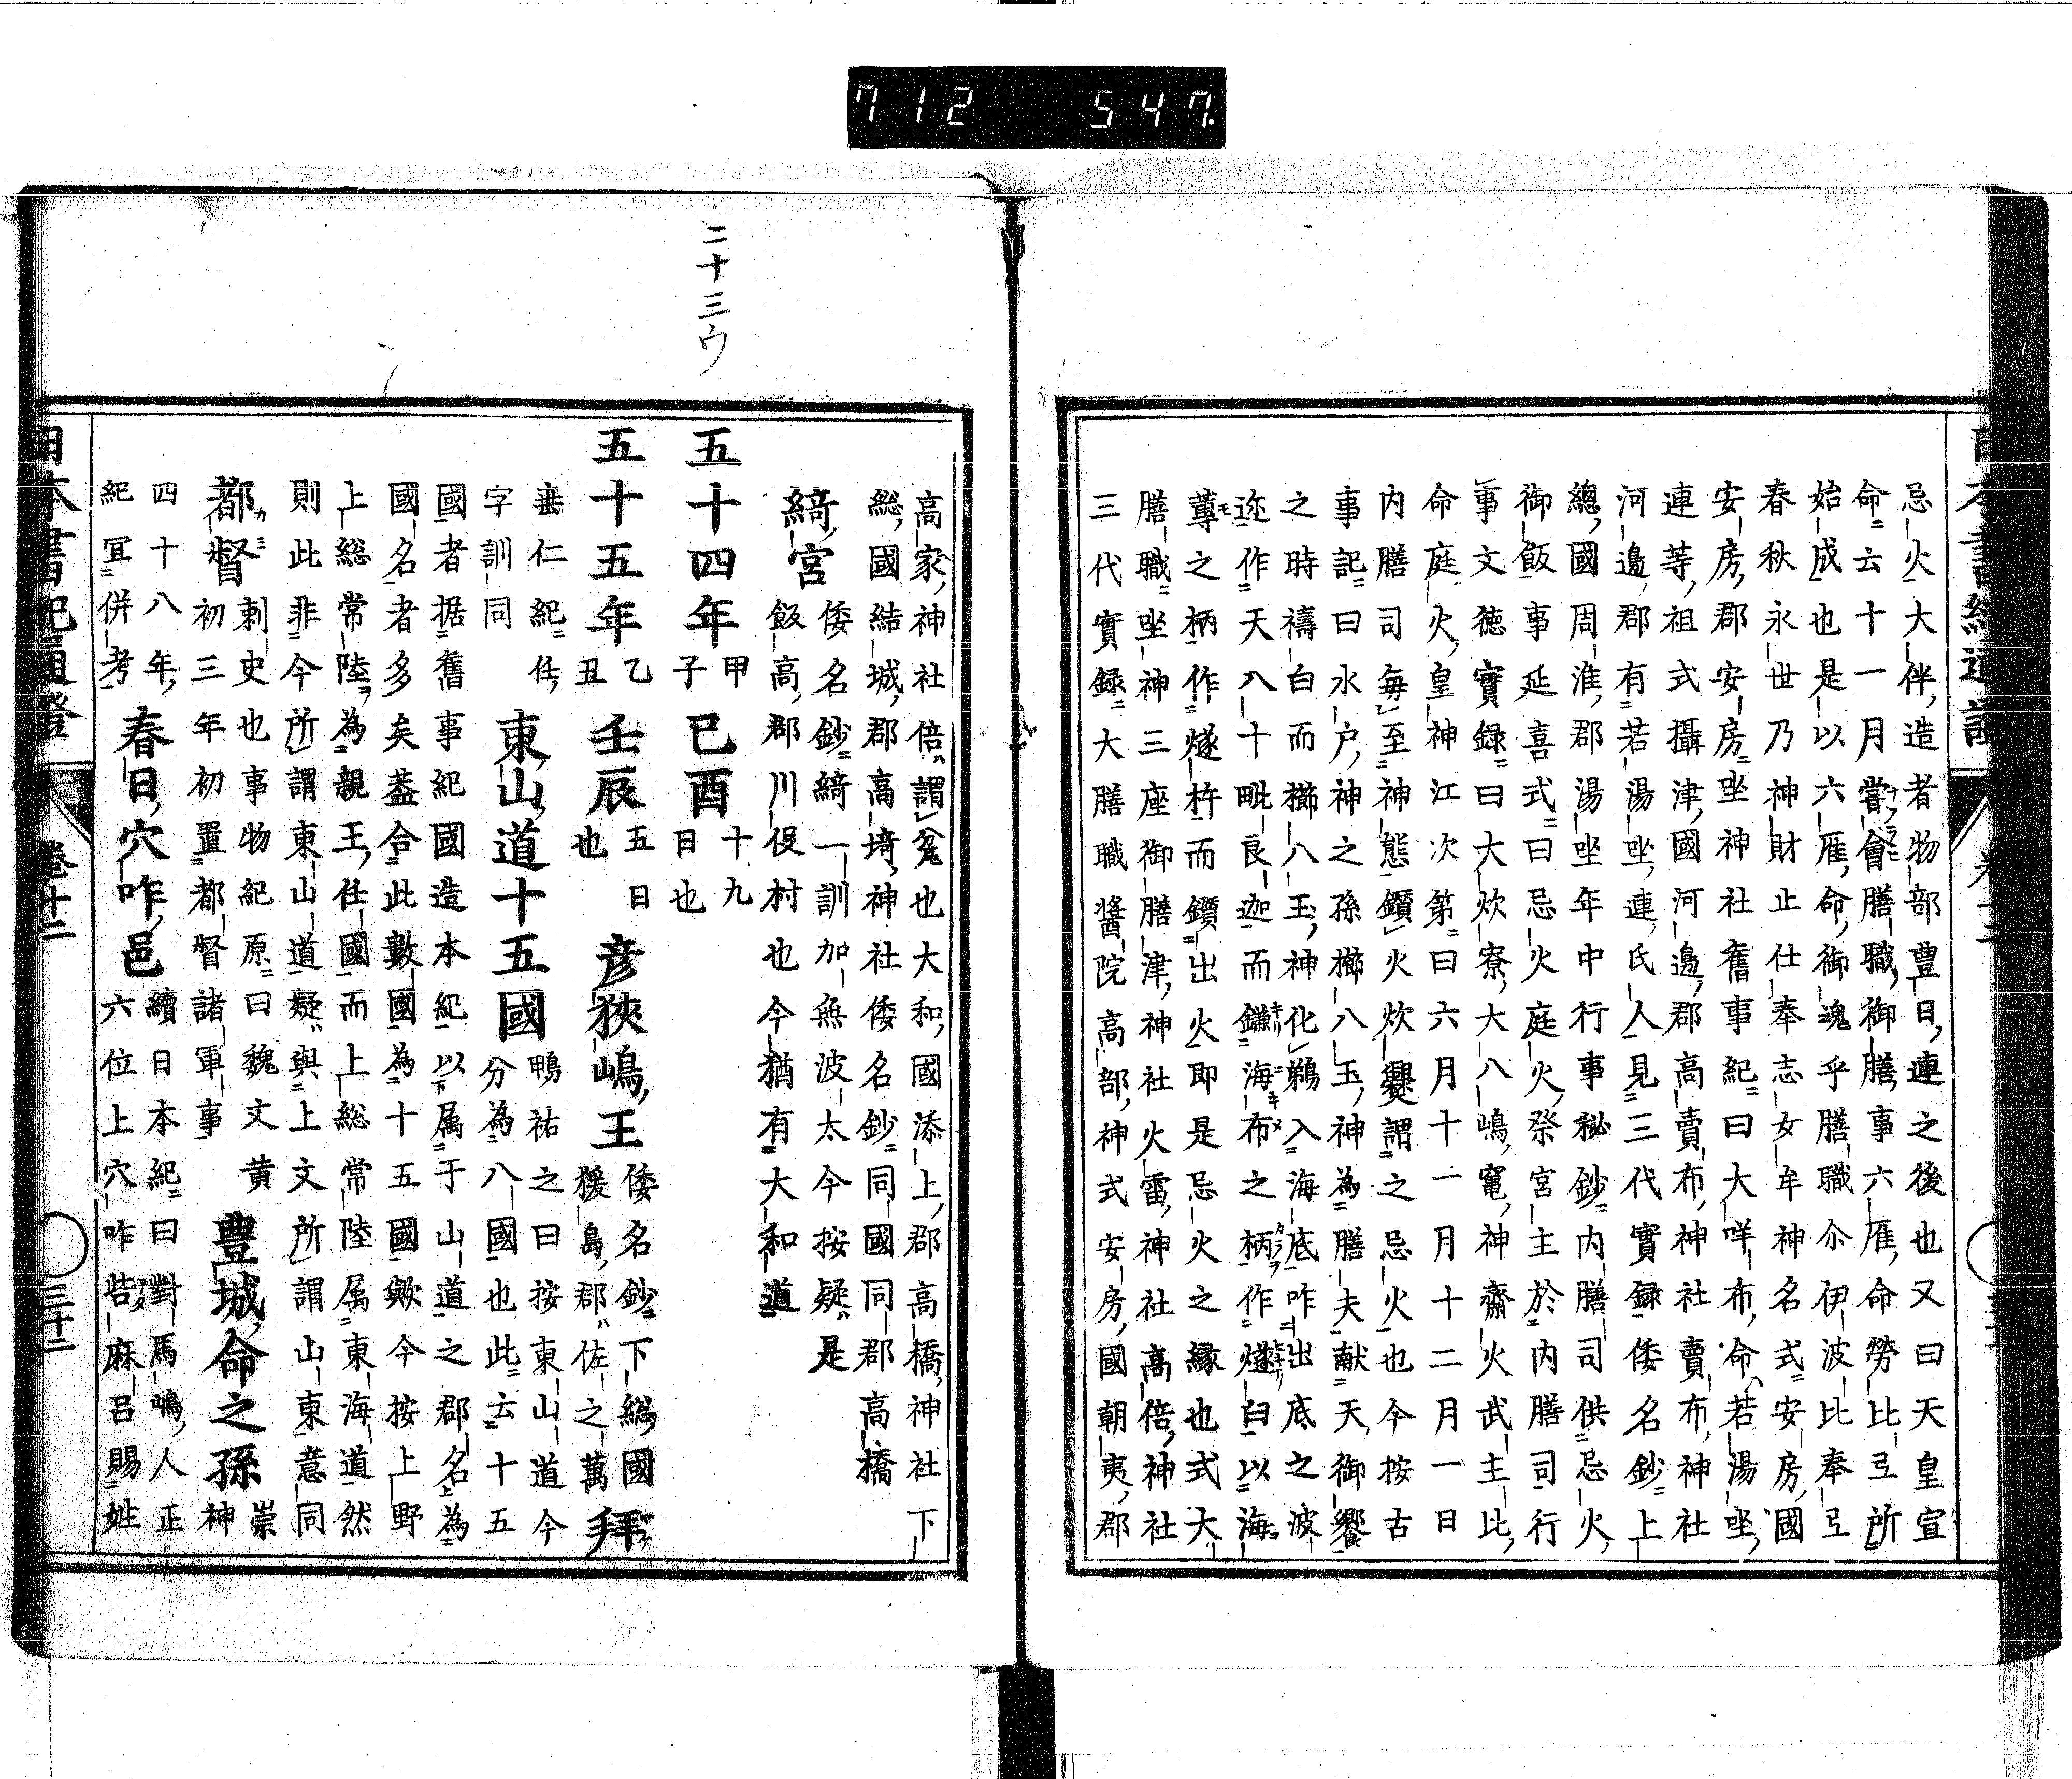 712 547.
忌火大伴造者物部豊日連之後也又曰天皇宣
命云十一月嘗會膳職御膳事六雁命勞比弖所
始成也是以六雁命御魂乎膳職尒伊波比奉弖
春秋永世乃神財止仕奉志女牟神名式安房國
安房郡安房坐神社舊事紀曰大咩布命若湯坐
連等祖式攝津國河邊郡高賣布神社賣布神社
河邊郡有若湯坐連氏人見三代實録倭名鈔上
總國周淮郡湯坐年中行事秘鈔内膳司供忌火
御飯事延喜式曰忌火庭火祭宮主於内膳司行
事文徳實録曰大炊寮大八嶋竃神齋火武主比
命庭火皇神江次第曰六月十一月十二月一日
内膳司毎至神態鑽火炊爨謂之忌火也今按古
事記曰水户神之孫櫛八玉神為膳夫献天御饗
之時禱白而櫛八玉神化鵜入海底咋出底之波
迩作天八十毗良迦而鎌海布之柄作燧臼以海
蓴之柄作燧杵而鑽出火即是忌火之縁也式大
膳職坐神三座御膳津神社火雷神社高倍神社
三代實録大膳職醬院高部神式安房國朝夷郡
二十三ウ
高家神社倍謂瓮也大和國添上郡高橋神社下
総國結城郡高埼神社倭名鈔同國同郡高橋
綺宮 倭名鈔綺一訓加無波太今按疑是
飯高郡川俣村也今猶有大和道
五十四年 甲子 已酉 十九日也
五十五年 乙丑 壬辰 五日也 彦狹嶋王 倭名鈔下総國猨島郡佐之萬 拜
垂仁紀任字訓同 東山道十五國 鴨祐之曰按東山道今分為八國也此云十五
國者据舊事紀國造本紀以下属于山道之郡名上為
國名者多矣葢合此數國為十五國歟今按上野
上総常陸為親王任國而上総常陸属東海道然
則此非今所謂東山道疑與上文所謂山東意同
都督 刺史也事物紀原曰魏文黄初三年初置都督諸軍事 豊城命之孫 崇神
四十八年紀冝併考 春日穴咋邑 續日本紀曰對馬嶋人正六位上穴咋呰麻呂賜姓
日本書紀通證 卷十二 三十二